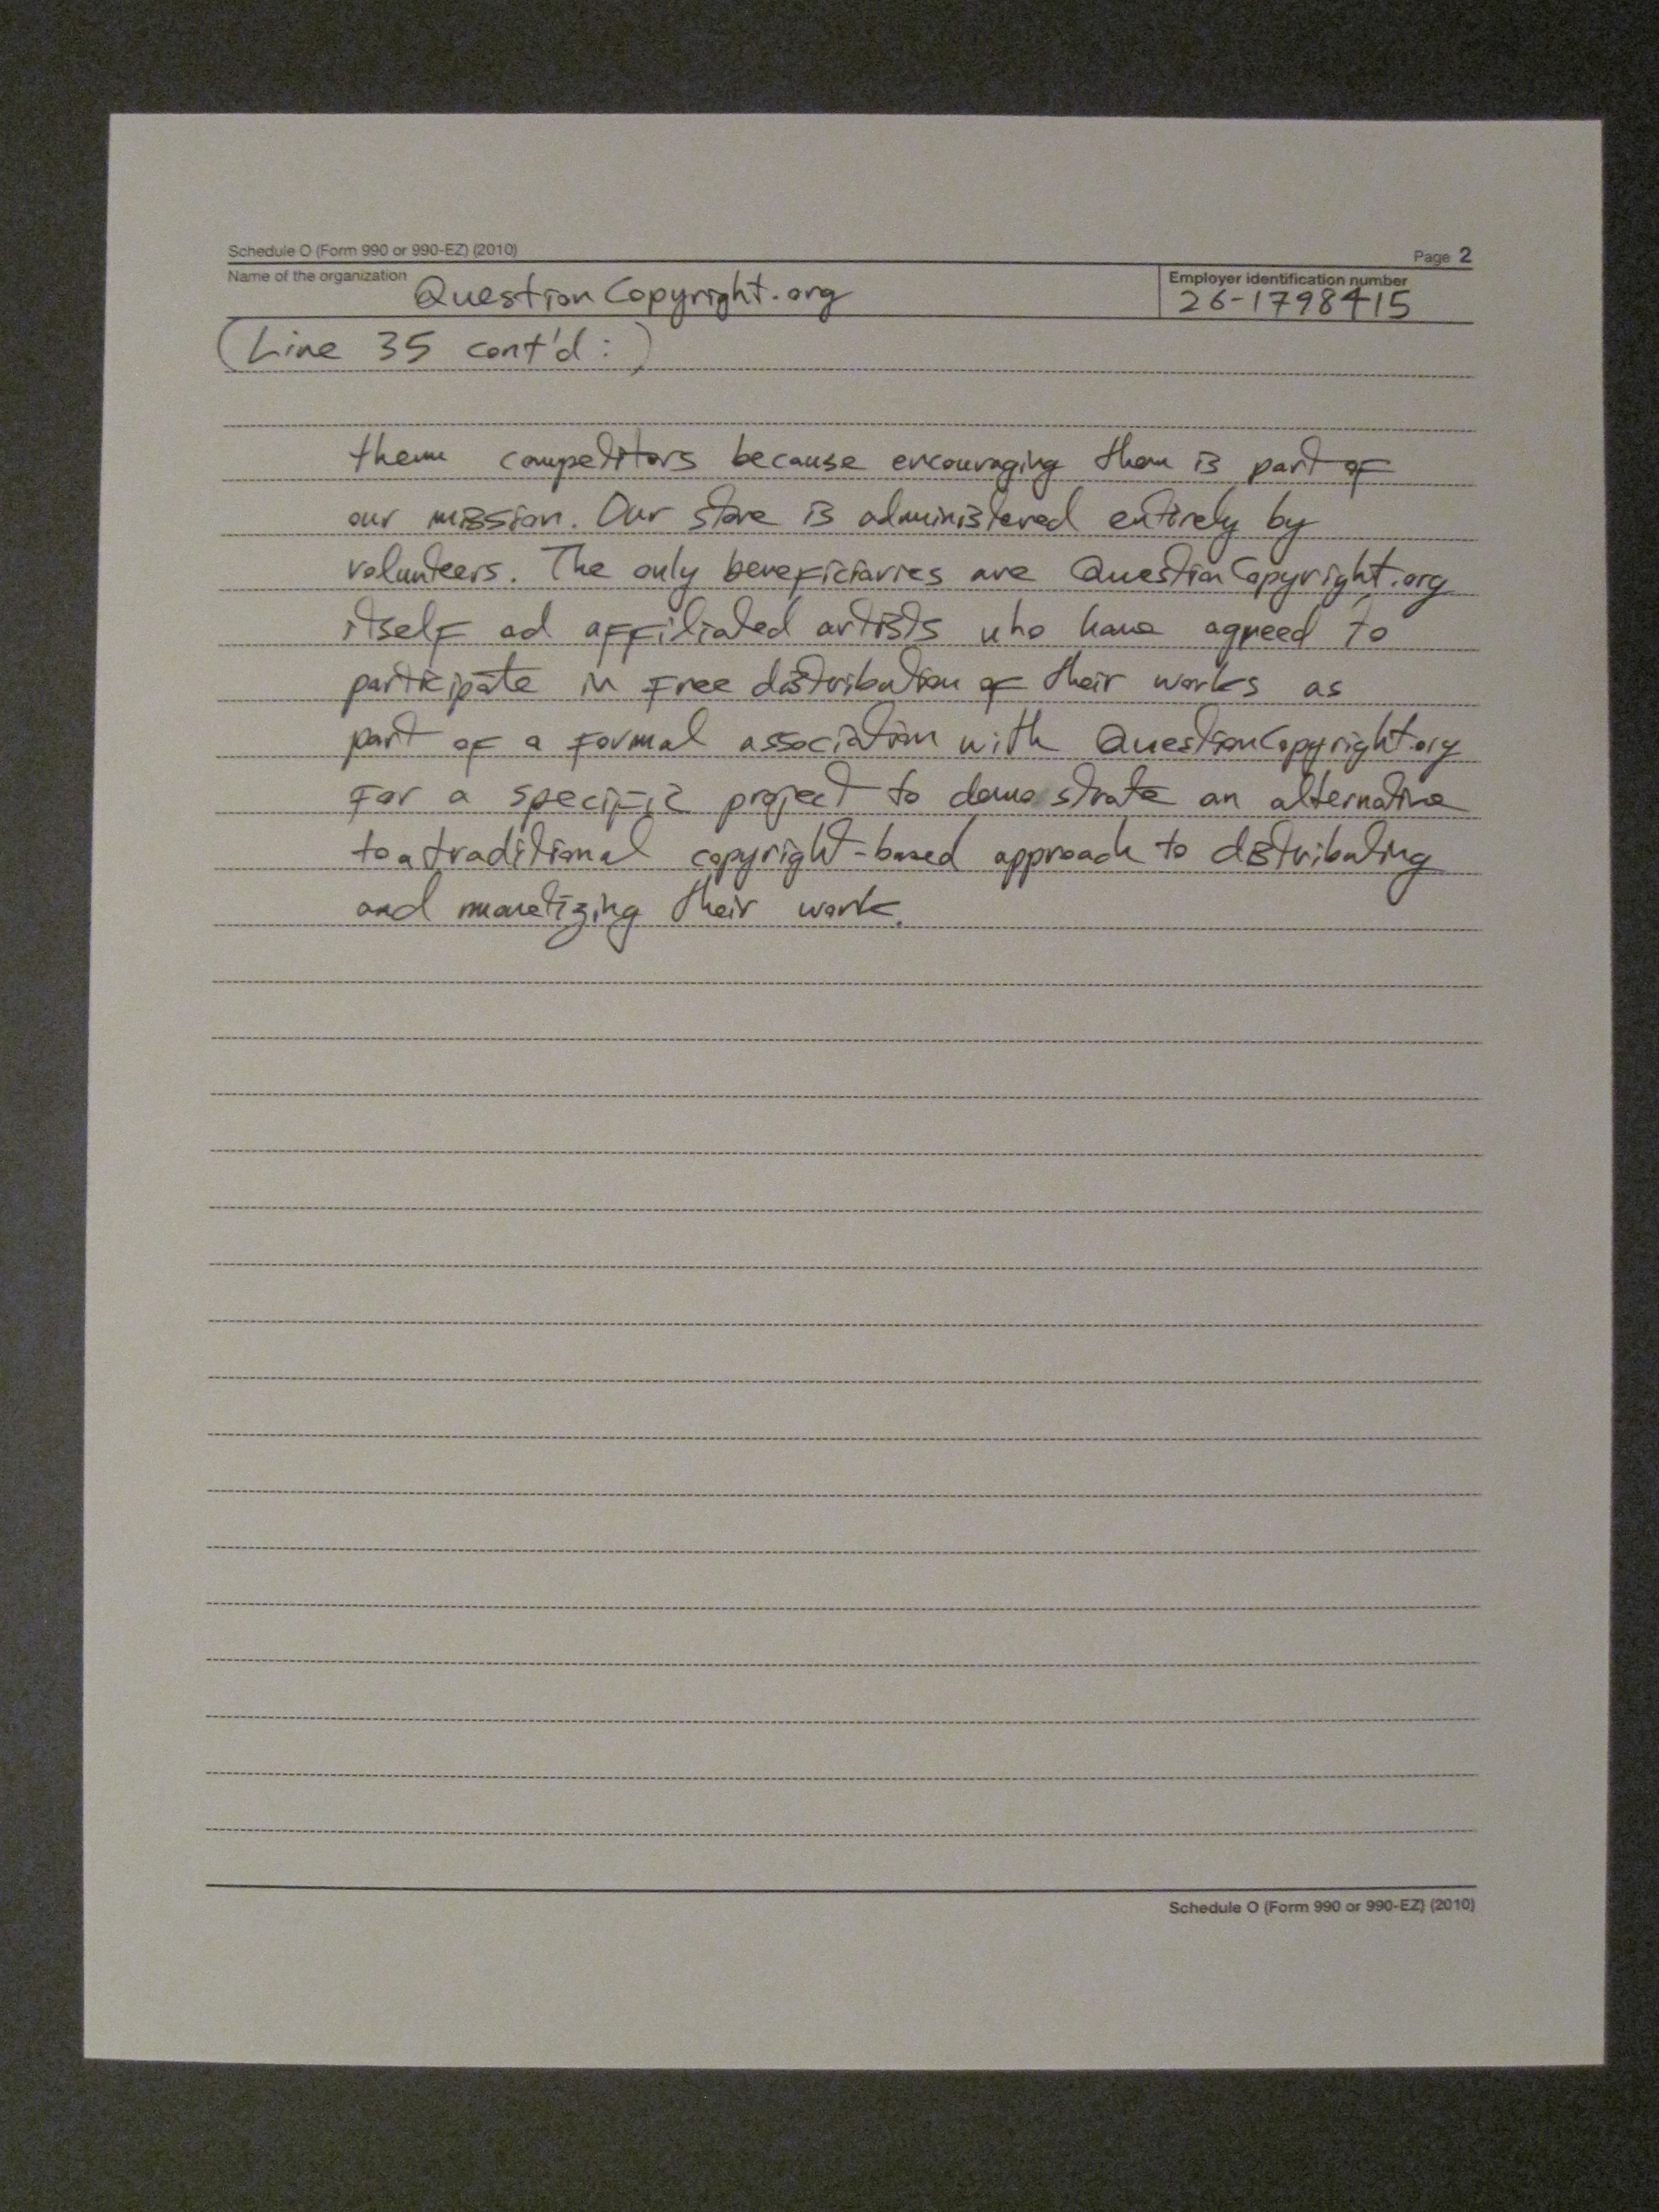 Schedule O (Form 990 or 990-EZ) (2010) Page 2
Name of the organization QuestionCopyright.org Employer identification number 26-1798415
(Line 35 cont'd:)
them competitors because encouraging them is part of
our mission. Our store is administered entirely by
volunteers. The only beneficiaries are QuestionCopyright.org
itself ad affiliated artists who have agreed to
participate in free distribution of their works as
part of a formal association with QuestionCopyright.org
for a specific project to demostrate an alternative
to a traditional copyright-based approach to distributing
and monetizing their work.
Schedule O (Form 990 or 990-EZ) (2010)